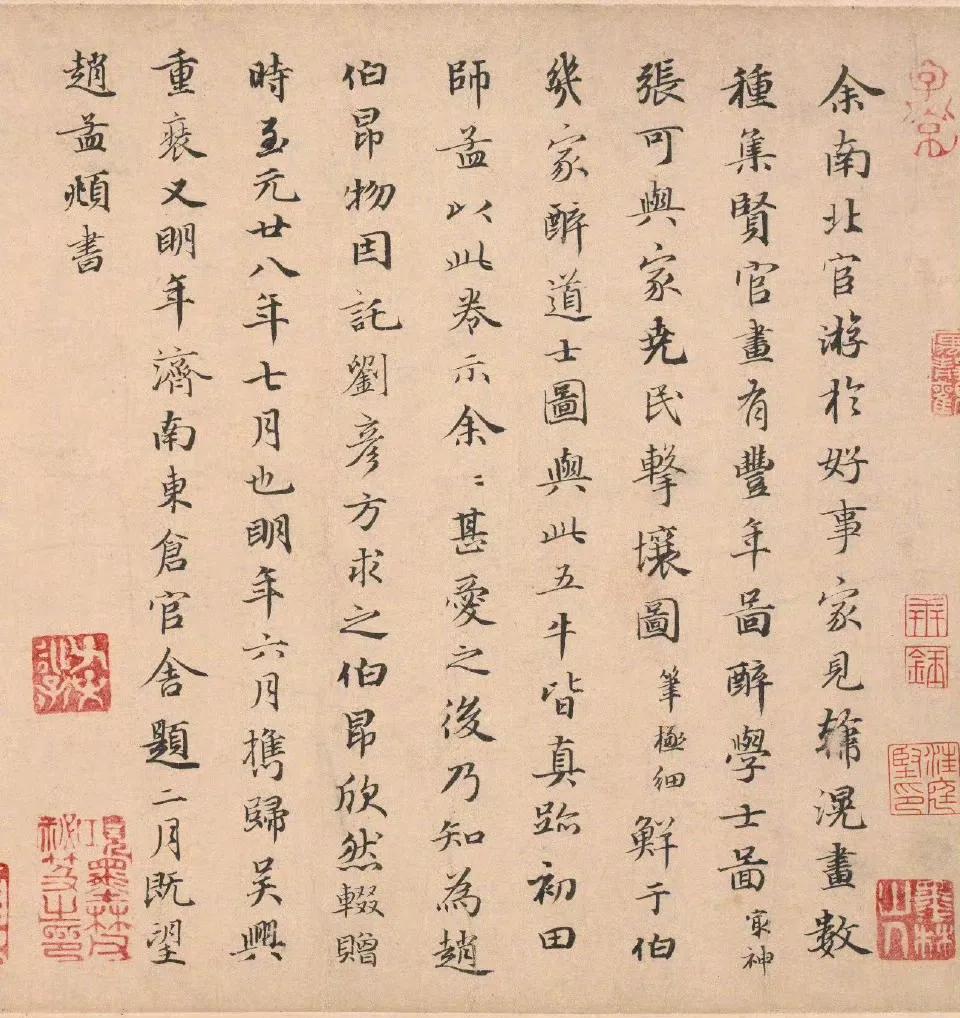 余南北官游於好事家見韓滉畫數
種集賢官畫有豐年啚醉學士啚冣神
張可與家尭民擊壤圖筆極細鮮于伯
幾家醉道士圖與此五牛皆真跡初田
師孟以此卷示余〻甚愛之後乃知為趙
伯昂物因託劉彦方求之伯昂欣然輟贈
時至元廿八年七月也明年六月携歸吴興
重裝又明年濟南東倉官舍題二月既望
趙孟頫書
項墨林父
秘笈之印